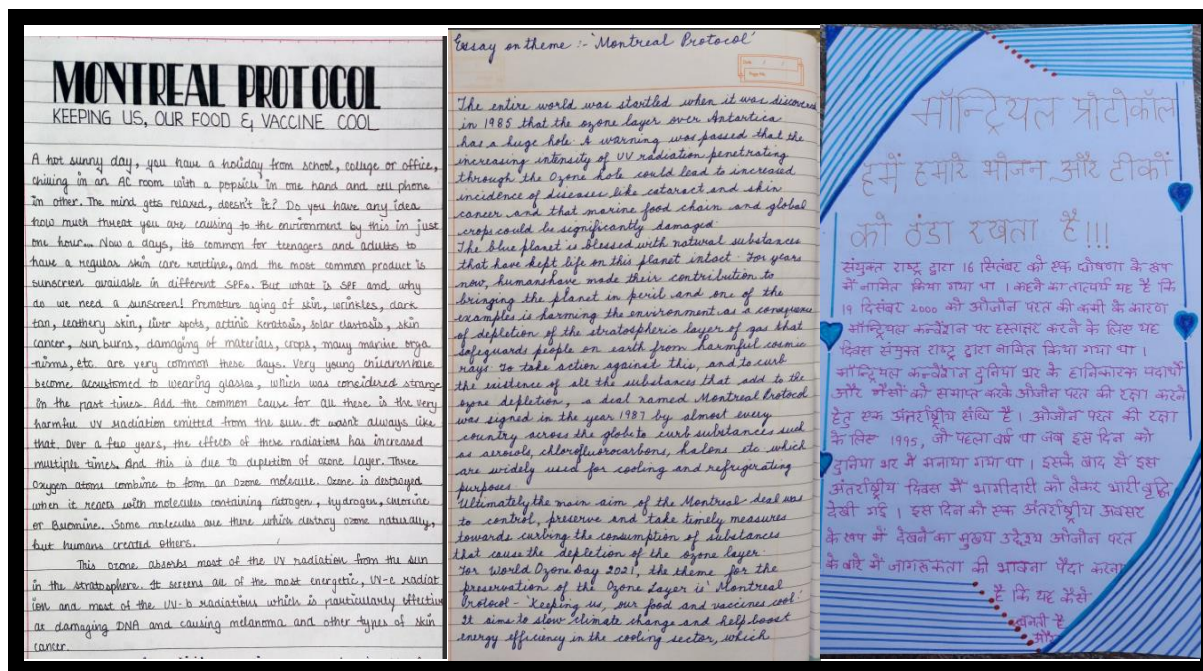 MONTREAL PROTOCOL
KEEPING US, OUR FOOD & VACCINE COOL
A hot sunny day, you have a holiday from school, college or office,
chilling in an AC room with a popsicle in one hand and cell phone
in other. The mind gets relaxed, doesn't it? Do you have any idea
how much threat you are causing to the environment by this in just
one hour... Now a days, its common for teenagers and adults to
have a regular skin care routine, and the most common product is
sunscreen available in different SPFs. But what is SPF and why
do we need a sunscreen! Premature aging of skin, wrinkles, dark
tan, leathery skin, liver spots, actinic keratosis, solar elastosis, skin
cancer, sun burns, damaging of materials, crops, many marine orga
-nisms, etc. are very common these days. Very young children have
become accustomed to wearing glasses, which was considered strange
in the past times. Add the common cause for all these is the very
harmful UV radiation emitted from the sun. It wasn't always like
that. Over a few years, the effects of these radiations has increased
multiple times. And this is due to depletion of ozone layer. Three
Oxygen atoms combine to form an Ozone molecule. Ozone is destroyed
when it reacts with molecules containing nitrogen, hydrogen, chlorine
or Bromine. Some molecules are there which destroy ozone naturally,
but humans created others.
This ozone absorbs most of the UV radiation from the sun
in the stratosphere. It screens all of the most energetic, UV-c radiat
ion and most of the UV-b radiations which is particularly effective
at damaging DNA and causing melanoma and other types of skin
cancer.
Essay on theme :- 'Montreal Protocol'
The entire world was startled when it was discovered
in 1985 that the ozone layer over Antartica
has a huge hole. A warning was passed that the
increasing intensity of UV radiation penetrating
through the Ozone hole could lead to increased
incidence of diseases like cataract and skin
cancer and that marine food chain and global
crops could be significantly damaged.
The blue planet is blessed with natural substances
that have kept life on this planet intact. For years
now, humans have made their contribution to
bringing the planet in peril and one of the
examples is harming the environment as a consequence
of depletion of the stratospheric layer of gas that
safeguards people on earth from harmful cosmic
rays. To take action against this, and to curb
the existence of all the substances that add to the
ozone depletion, a deal named Montreal Protocol
was signed in the year 1987 by almost every
country across the globe to curb substances such
as aerosols, chlorofluorocarbons, halons etc which
are widely used for cooling and refrigerating
purposes.
Ultimately the main aim of the Montreal deal was
to control, preserve and take timely measures
towards curbing the consumption of substances
that cause the depletion of the ozone layer.
For World Ozone Day 2021, the theme for the
preservation of the Ozone Layer is 'Montreal
Protocol - 'Keeping us, our food and vaccines cool'
It aims to slow climate change and help boost
energy efficiency in the cooling sector, which
मॉन्ट्रियल प्रोटोकॉल
हमें हमारे भोजन और टीकों
को ठंडा रखता है!!!
संयुक्त राष्ट्र द्वारा 16 सितंबर को एक घोषणा के रूप
में नामित किया गया था । कहने का तात्पर्य यह है कि
19 दिसंबर 2000 को ओजोन परत की कमी के कारण
मॉन्ट्रियल कन्वेंशन पर हस्ताक्षर करने के लिए यह
दिवस संयुक्त राष्ट्र द्वारा नामित किया गया था ।
मॉन्ट्रियल कन्वेंशन दुनिया भर के हानिकारक पदार्थों
और गैसों को समाप्त करके ओजोन परत की रक्षा करने
हेतु एक अंतर्राष्ट्रीय संधि है । ओजोन परत की रक्षा
के लिए 1995, जो पहला वर्ष था जब इस दिन को
दुनिया भर में मनाया गया था । इसके बाद से इस
अंतर्राष्ट्रीय दिवस में भागीदारी को लेकर भारी वृद्धि
देखी गई । इस दिन को एक अंतर्राष्ट्रीय अवसर
के रूप में देखने का मुख्य उद्देश्य ओजोन परत
के बारे में जागरूकता की भावना पैदा करना
है कि यह कैसे
बनती है
और